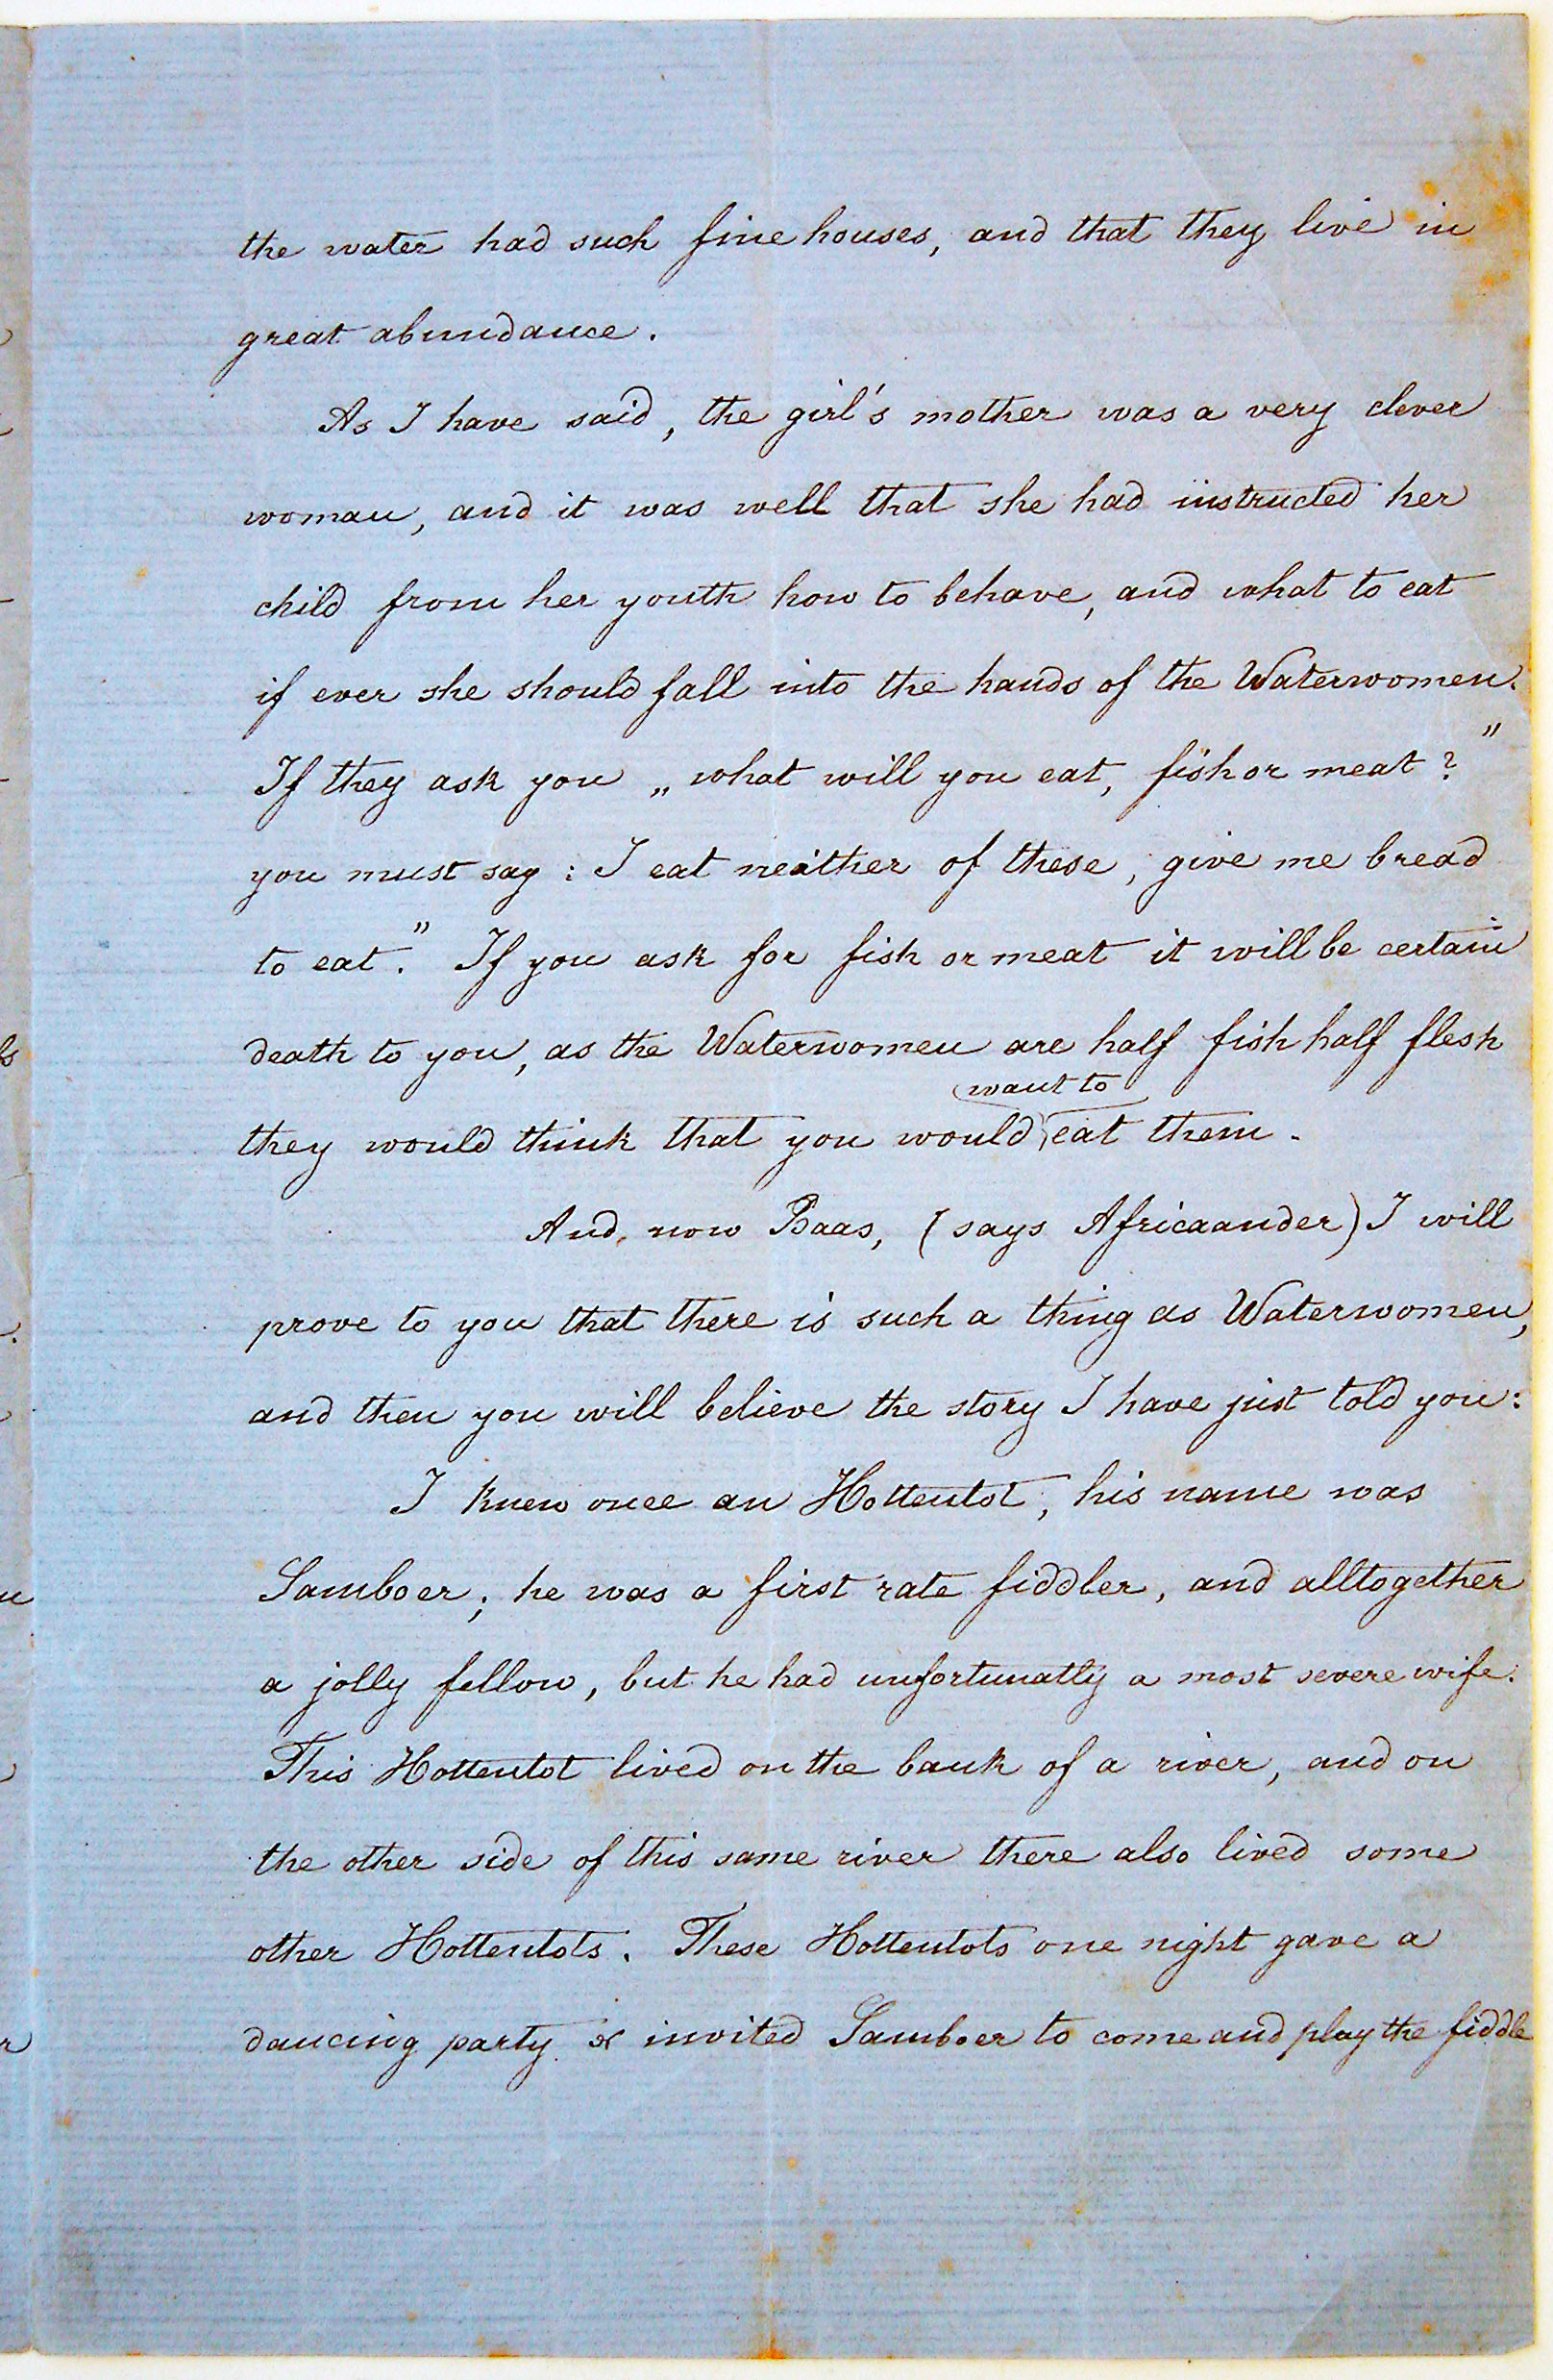 the water had such fine houses, and that they live in
great abundance.
As I have said, the girl's mother was a very clever
woman, and it was well that she had instructed her
child from her youth how to behave, and what to eat
if ever she should fall into the hands of the Waterwomen.
If they ask you „what will you eat, fish or meat?"
you must say: I eat neither of these, give me bread
to eat." If you ask for fish or meat it will be certain
death to you, as the Waterwomen are half fish half flesh
want to
they would think that you would eat them.
And, now Baas, (says Africaander) I will
prove to you that there is such a thing as Waterwomen,
and then you will believe the story I have just told you:
I knew once an Hottentot, his name was
Samboer; he was a first rate fiddler, and alltogether
a jolly fellow, but he had unfortunatly a most severe wife.
This Hottentot lived on the bank of a river, and on
the other side of this same river there also lived some
other Hottentots. These Hottentots one night gave a
dancing party & invited Samboer to come and play the fiddle